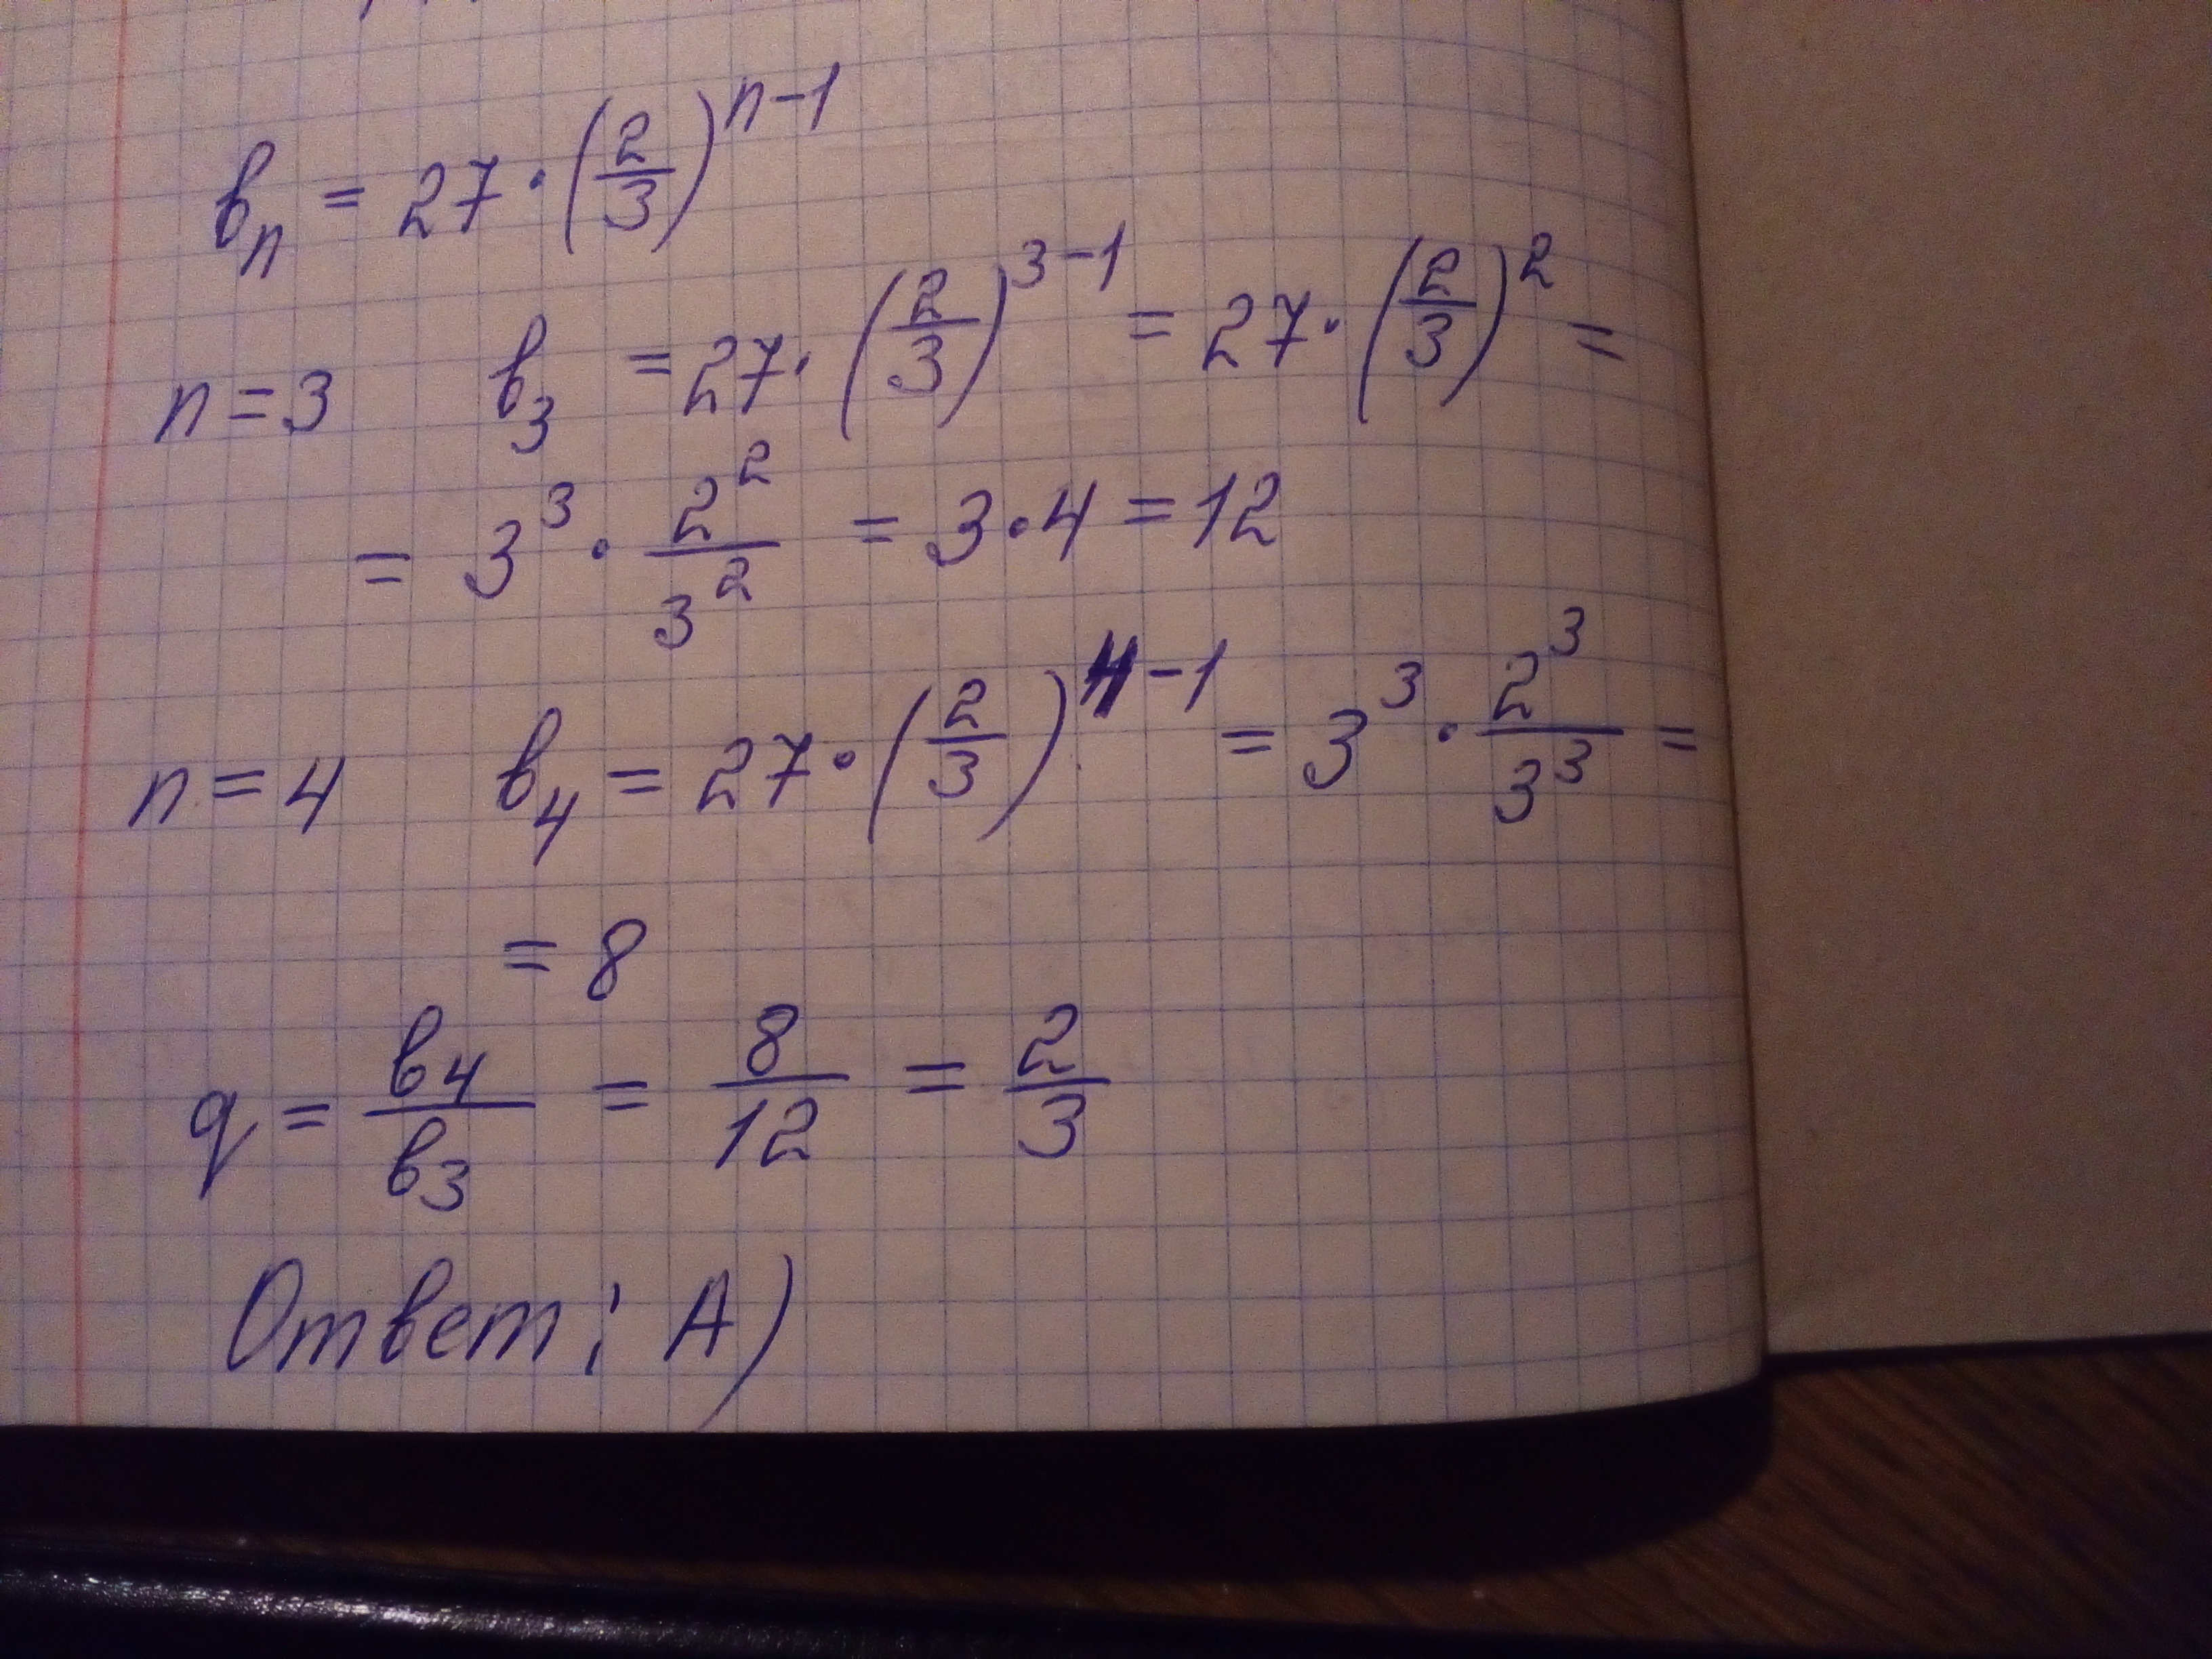 bₙ = 27 · (2/3)ⁿ⁻¹
n = 3 b₃ = 27 · (2/3)³⁻¹ = 27 · (2/3)² =
= 3³ · 2²/3² = 3 · 4 = 12
n = 4 b₄ = 27 · (2/3)⁴⁻¹ = 3³ · 2³/3³ =
= 8
q = b₄/b₃ = 8/12 = 2/3
Ответ: А)